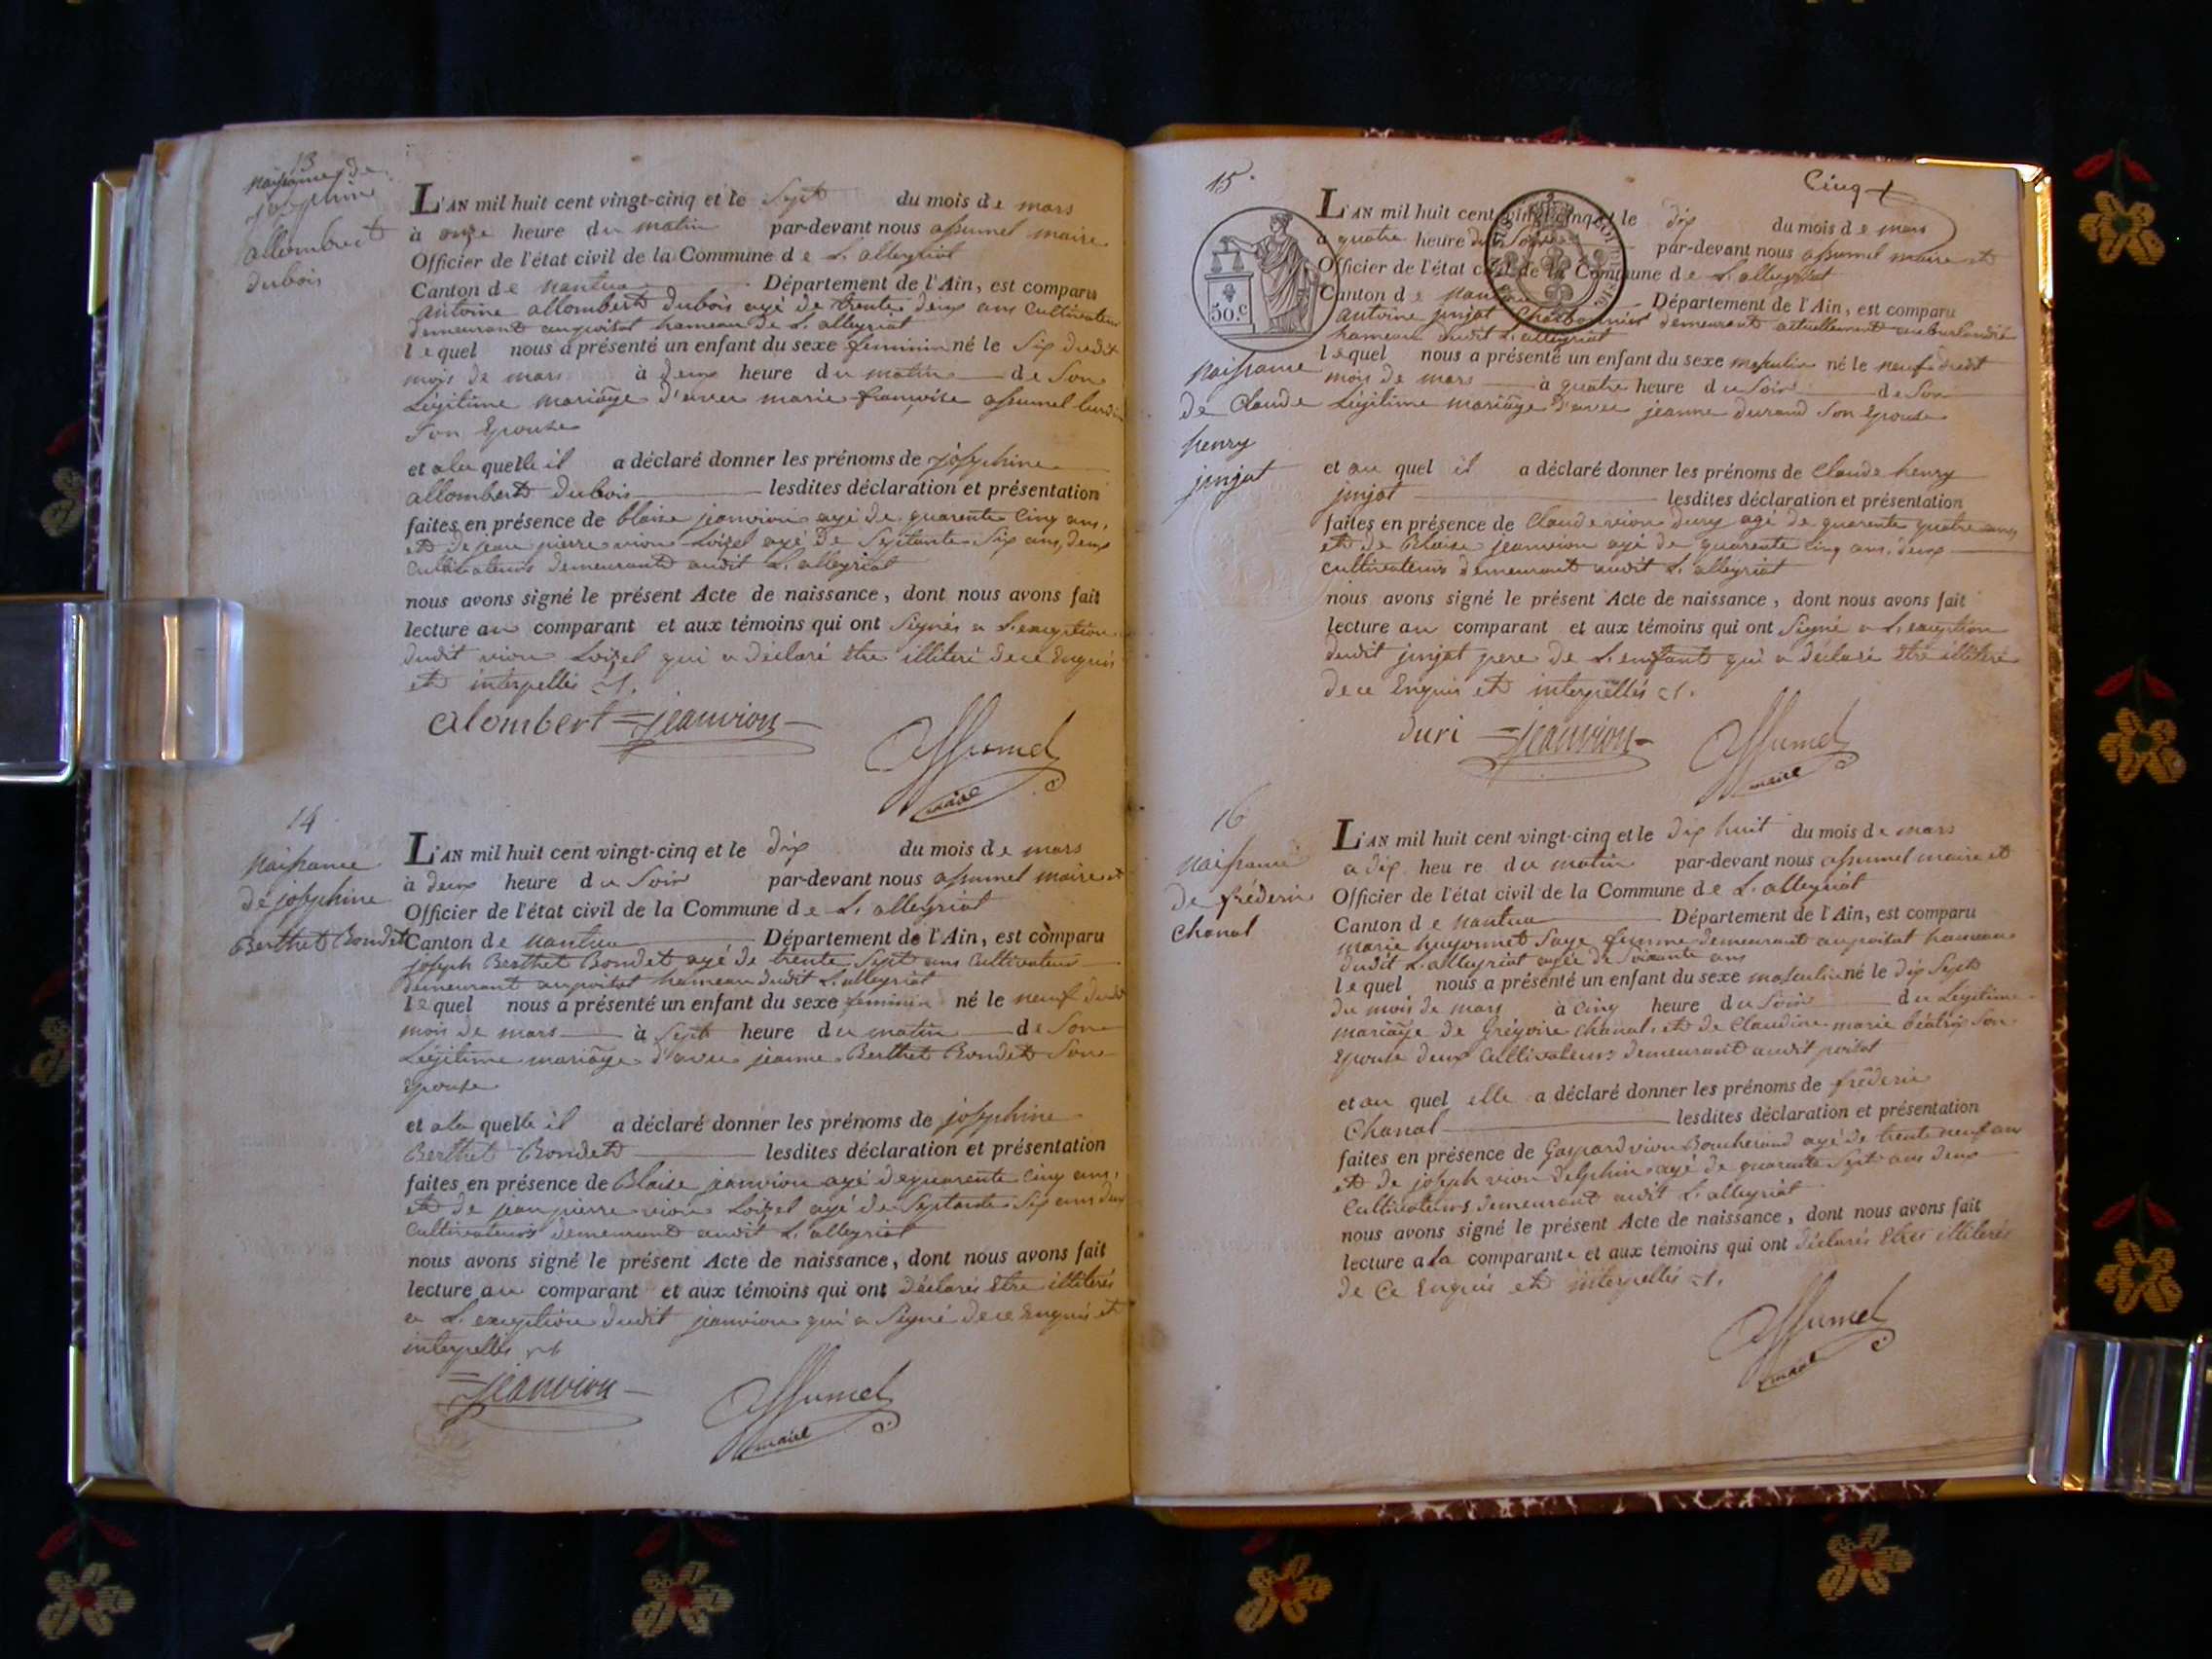 13
naissance de
josephine
allombert
dubois
L'AN mil huit cent vingt-cinq et le Sept du mois de mars
à onze heure du matin par-devant nous assumel maire
Officier de l'état civil de la Commune de L'alleyriat
Canton de nantua Département de l'Ain, est comparu
antoine allombert dubois agé de trente deux ans Cultivateur
demeurant au poisat hameau de L'alleyriat
lequel nous a présenté un enfant du sexe feminin né le Six dudit
mois de mars à deux heure du matin de Son
Légitime mariage d'avec marie françoise assumel
Son Epouse
et a la quelle il a déclaré donner les prénoms de josephine
allombert dubois lesdites déclaration et présentation
faites en présence de blaise jeanvion agé de quarente Cinq ans,
et de jean pierre vion Loizel agé de Septante Six ans, deux
Cultivateurs demeurant audit L'alleyriat
nous avons signé le présent Acte de naissance, dont nous avons fait
lecture au comparant et aux témoins qui ont Signés a L'exeption
dudit vion Loizel qui a déclaré être illiteré de ce Enquis
et interpellés
alombert jeanvion
assumel
maire
14
naissance
de josephine
Berthet Bondet
L'AN mil huit cent vingt-cinq et le dix du mois de mars
à deux heure du Soir par-devant nous assumel maire et
Officier de l'état civil de la Commune de L'alleyriat
Canton de nantua Département de l'Ain, est comparu
joseph Berthet Bondet agé de trente Sept ans Cultivateur
demeurant au poisat hameau dudit L'alleyriat
lequel nous a présenté un enfant du sexe feminin né le neuf dudit
mois de mars à Sept heure du matin de Son
Légitime mariage d'avec jeanne Berthet Bondet Son
Epouse
et a la quelle il a déclaré donner les prénoms de josephine
Berthet Bondet lesdites déclaration et présentation
faites en présence de Blaise jeanvion agé de quarente Cinq ans,
et de jean pierre vion Loizel agé de Septante Six ans deux
Cultivateurs demeurant audit L'alleyriat
nous avons signé le présent Acte de naissance, dont nous avons fait
lecture au comparant et aux témoins qui ont déclarés Etre illiterés
a L'exeption dudit jeanvion qui a Signé de ce Enquis et
interpellés
jeanvion
assumel
maire
Cinq
15
50.c
naissance
de Claude
henry
jinjat
L'AN mil huit cent vingt-cinq et le dix du mois de mars
à quatre heure du Soir par-devant nous assumel maire et
Officier de l'état civil de la Commune de L'alleyriat
Canton de nantua Département de l'Ain, est comparu
antoine jinjat Charbonnier demeurant actuellement
hameau dudit L'alleyriat
lequel nous a présenté un enfant du sexe masculin né le neuf dudit
mois de mars à quatre heure du Soir de Son
Légitime mariage d'avec jeanne durand Son Epouse
et au quel il a déclaré donner les prénoms de Claude henry
jinjat lesdites déclaration et présentation
faites en présence de Claude vion dury agé de quarente quatre ans
et de Blaise jeanvion agé de quarente cinq ans, deux
Cultivateurs demeurant audit L'alleyriat
nous avons signé le présent Acte de naissance, dont nous avons fait
lecture au comparant et aux témoins qui ont Signé a L'exeption
dudit jinjat pere de L'enfant qui a déclaré être illiteré
de ce Enquis et interpellés
duri jeanvion assumel
maire
16
naissance
de fréderic
Chanal
L'AN mil huit cent vingt-cinq et le dix huit du mois de mars
a dix heure du matin par-devant nous assumel maire et
Officier de l'état civil de la Commune de L'alleyriat
Canton de nantua Département de l'Ain, est comparu
marie hugonnet Sage femme demeurant au poisat hameau
dudit L'alleyriat agée de Soixante ans
lequel nous a présenté un enfant du sexe masculin né le dix Sept
du mois de mars à Cinq heure du Soir du Légitime
mariage de Grégoire Chanal, et de Claudine marie béatrix Son
Epouse deux Cultivateurs demeurant audit poisat
et au quel elle a déclaré donner les prénoms de fréderic
Chanal lesdites déclaration et présentation
faites en présence de Gaspard vion Boucherand agé de trente neuf ans
et de joseph vion Delphin agé de quarante Sept ans deux
Cultivateurs demeurant audit L'alleyriat
nous avons signé le présent Acte de naissance, dont nous avons fait
lecture a la comparante et aux témoins qui ont déclarés Etre illiterés
de Ce Enquis et interpellés
assumel
maire